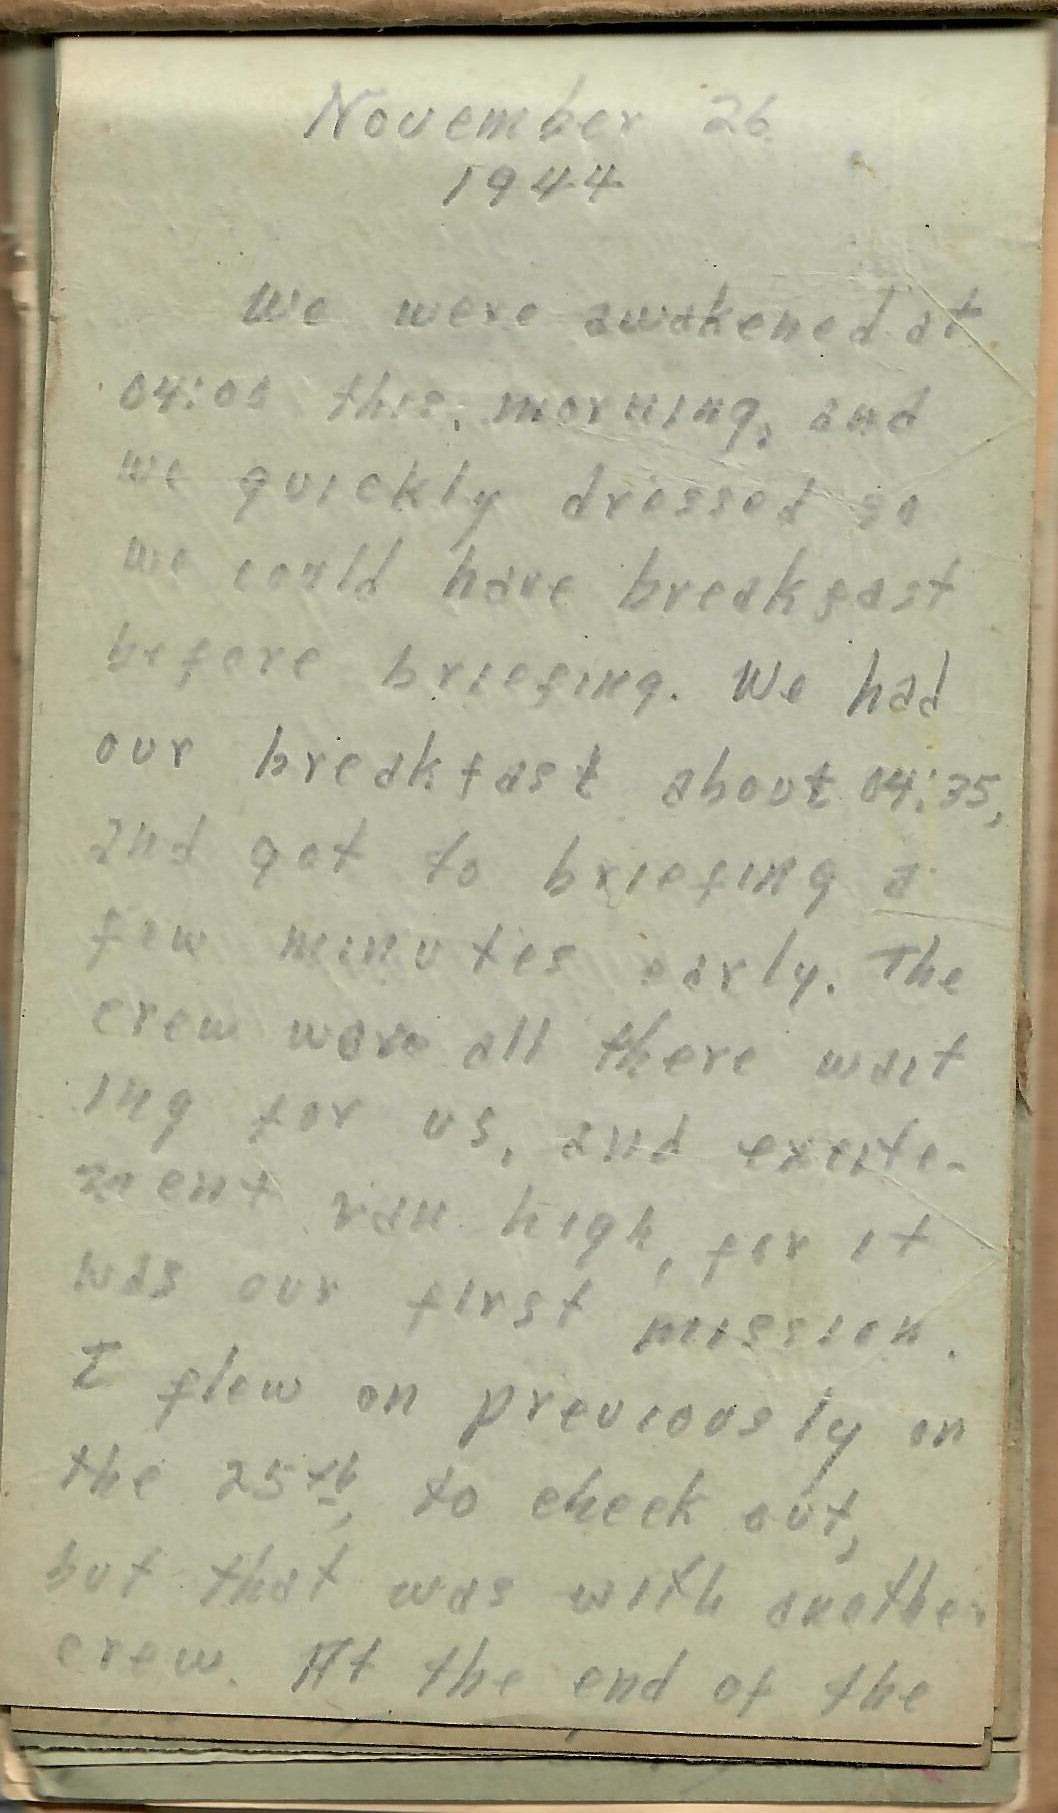 November 26
1944
We were awakened at
04:00 this, morning, and
we quickly dressed so
we could have breakfast
before briefing. We had
our breakfast about 04:35,
and got to briefing a
few minutes early. The
crew were all there wait
ing for us, and excite-
ment ran high, for it
was our first mission.
I flew on previously on
the 25th, to check out,
but that was with another
crew. At the end of the